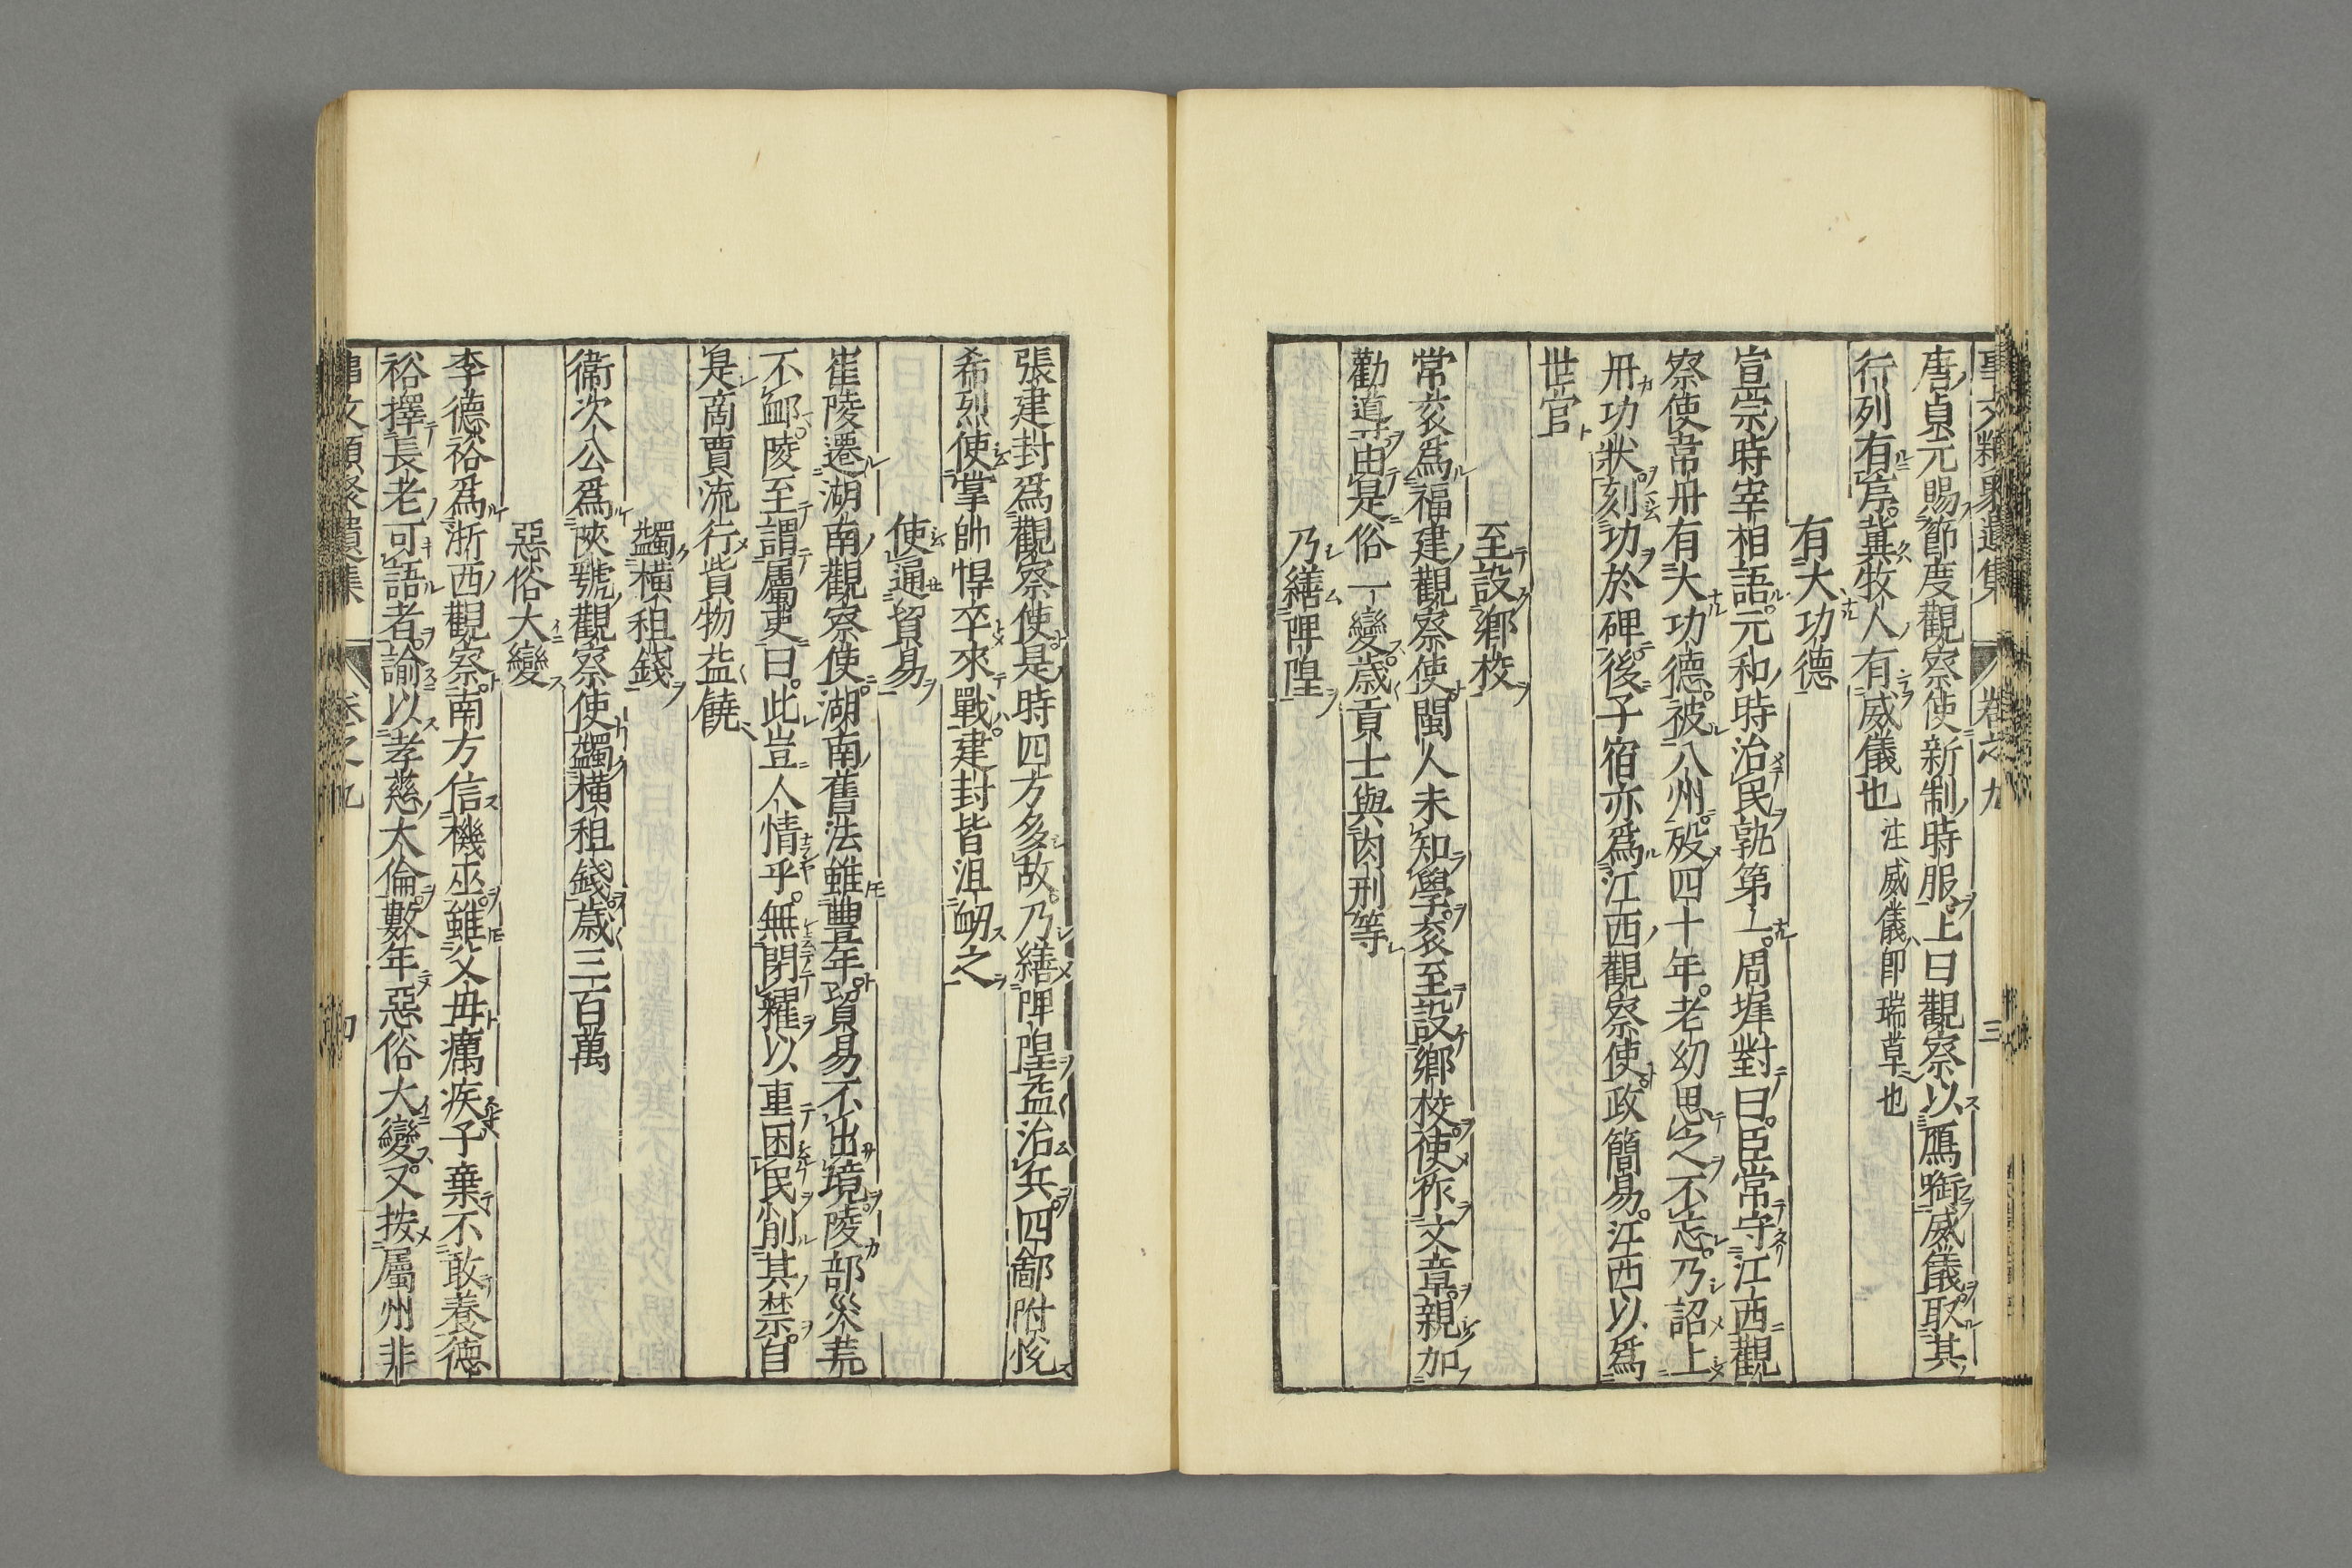 事文類聚遺集 卷之九 三
唐貞元賜節度觀察使新制時服上曰觀察以鴈啣威儀取其
行列有序冀牧人有威儀也 注威儀即瑞草也
有大功德
宣宗時宰相語元和時治民孰第一周墀對曰臣常守江西觀
察使韋丹有大功德被八州殁四十年老幼思之不忘乃詔上
丹功狀刻功於碑後子宿亦爲江西觀察使政簡易江西以爲
世官
至設鄉校
常袞爲福建觀察使閩人未知學袞至設鄉校使作文章親加
勸導由是俗一變歲貢士與内州等
乃繕陴隍
張建封爲觀察使是時四方多故乃繕陴隍益治兵四鄙附悅
希烈使掌帥悍卒來戰建封皆沮衂之
使通貿易
崔陵遷湖南觀察使湖南舊法雖豐年貿易不出境陵部災荒
不䘏陵至謂屬吏曰此豈人情乎無閉糴以重困民削其禁自
是商賈流行貲物益饒
蠲橫租錢
衞次公爲陝虢觀察使蠲橫租錢歲三百萬
惡俗大變
李德裕爲浙西觀察南方信禨巫雖父母癘疾子棄不敢養德
裕擇長老可語者諭以孝慈大倫數年惡俗大變又按屬州非
事文類聚遺集 卷之九 四